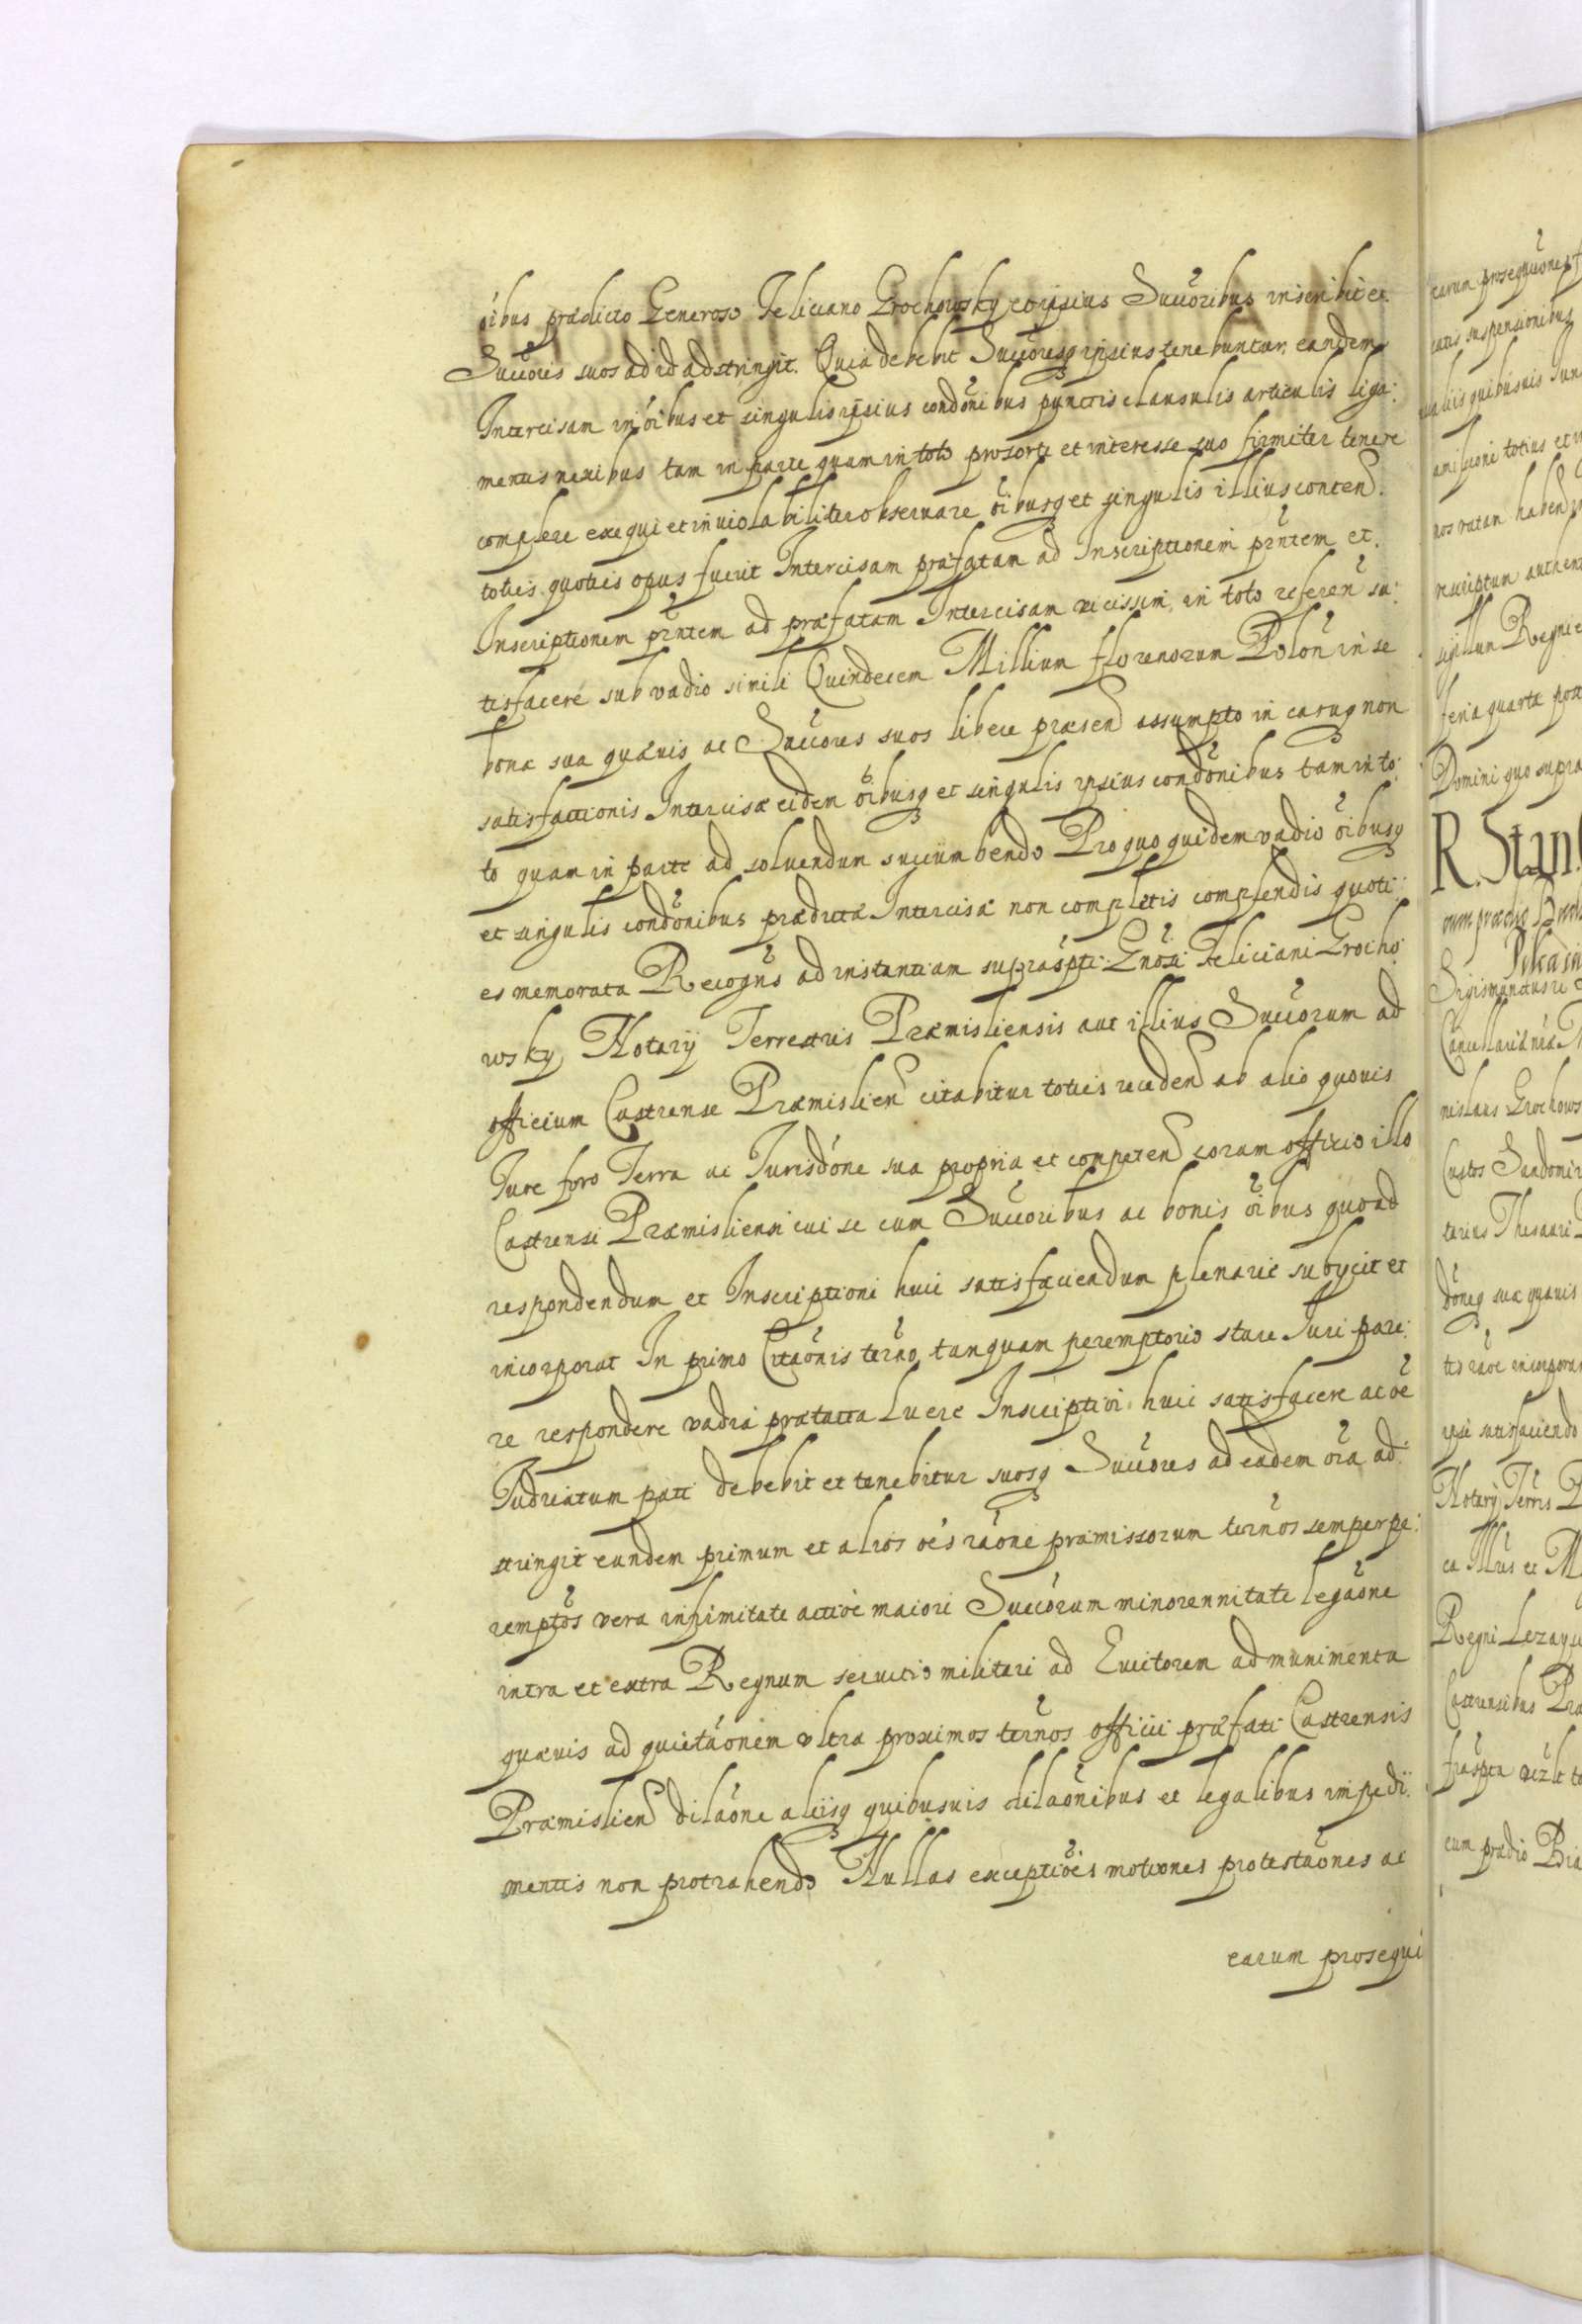 oı̃bus prædicto Generoso Feliciano Grochowsky et ipsius Succoribus inscribit et
Succores suos ad id adstringit. Quia debebit Succoresq ipsius tenebuntur, eandem
Intercisam in oı̃bus et singulis ipsius condõnibus punctis clausulis articulis liga:
mentis nexibus tam in parte quam in toto pro sorte et interesse suo firmiter tenere
complere exequi et inuiolabiliter obseruare oı̃busq et singulis illius conten.
toties quoties opus fuerit Intercisam præfatam ad Inscriptionem pn̄tem et
Inscriptionem pn̄tem ad præfatam Intercisam vicissim, in toto referen sa:
tisfacere sub vadio simili Quindecem Millium florenorum Polon in se
bona sua quæuis ac Succores suos libere præsen assumpto in casuq non
satisfactionis Intercisæ eidem oı̃busq et singulis ipsius condõnibus tam in to:
to quam in parte ad soluendum succumbendo Pro quo quidem vadio oı̃busq
et singulis condõnibus prædictæ Intercisæ non completis complendis quoti:
es memorata Recogn̄s ad instantiam suprasp̄ti Gn̄osi Feliciani Grocho:
wsky Notarij Terrestris Præmisliensis aut illius Succorum ad
officium Castrense Præmislien citabitur toties receden ab alio quouis
Jure foro Terra ac Jurisdõne sua propria et competen coram officio illo
Castrensi Præmisliensi cui se cum Succoribus ac bonis oı̃bus quoad
respondendum et Inscriptioni huic satisfaciendum plenarie subycit et
incorporat In primo Citaõnis termo, tanquam peremptorio stare Juri pare:
re respondere vadia prætacta luere Inscriptioi huic satisfacere ac oẽ
Judicatum pati debebit et tenebitur suosq Succores ad eadem oĩa ad:
stringit eundem primum et alios oẽs raõne præmissorum term̃os semper pe:
remptõs vera infirmitate actioẽ maiori Succorum minorennitate legaõne
intra et extra Regnum seruitio militari ad Euictorem ad munimenta
quæuis ad quietaõnem vltra proximos term̃os officii præfati Castrensis
Præmislien dilaõne aliisq quibusuis dilaõnibus et legalibus impedi:
mentis non protrahendo Nullas exceptioẽs motiones protestaõnes ac
earum prosequi
earum prosequuone
catis suspensionibus
aliis quibusuis
nos ratam haben
Regni
feria quarta post
Domini quo supra
R. Stan
Sigismundus
Grochows
Custos Sandomir
Thesauri
dõneq suæ quæuis
incorporat
ipsi satisfaciendo
Notarij Terris
ca Illus et M
Regni Lezays
Castrensibus Præ
cum prædio